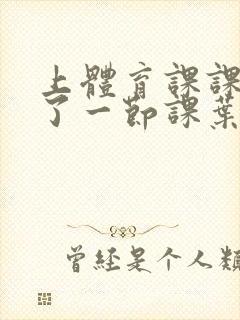 上體育課課
了一節課葉
曾经是个人類